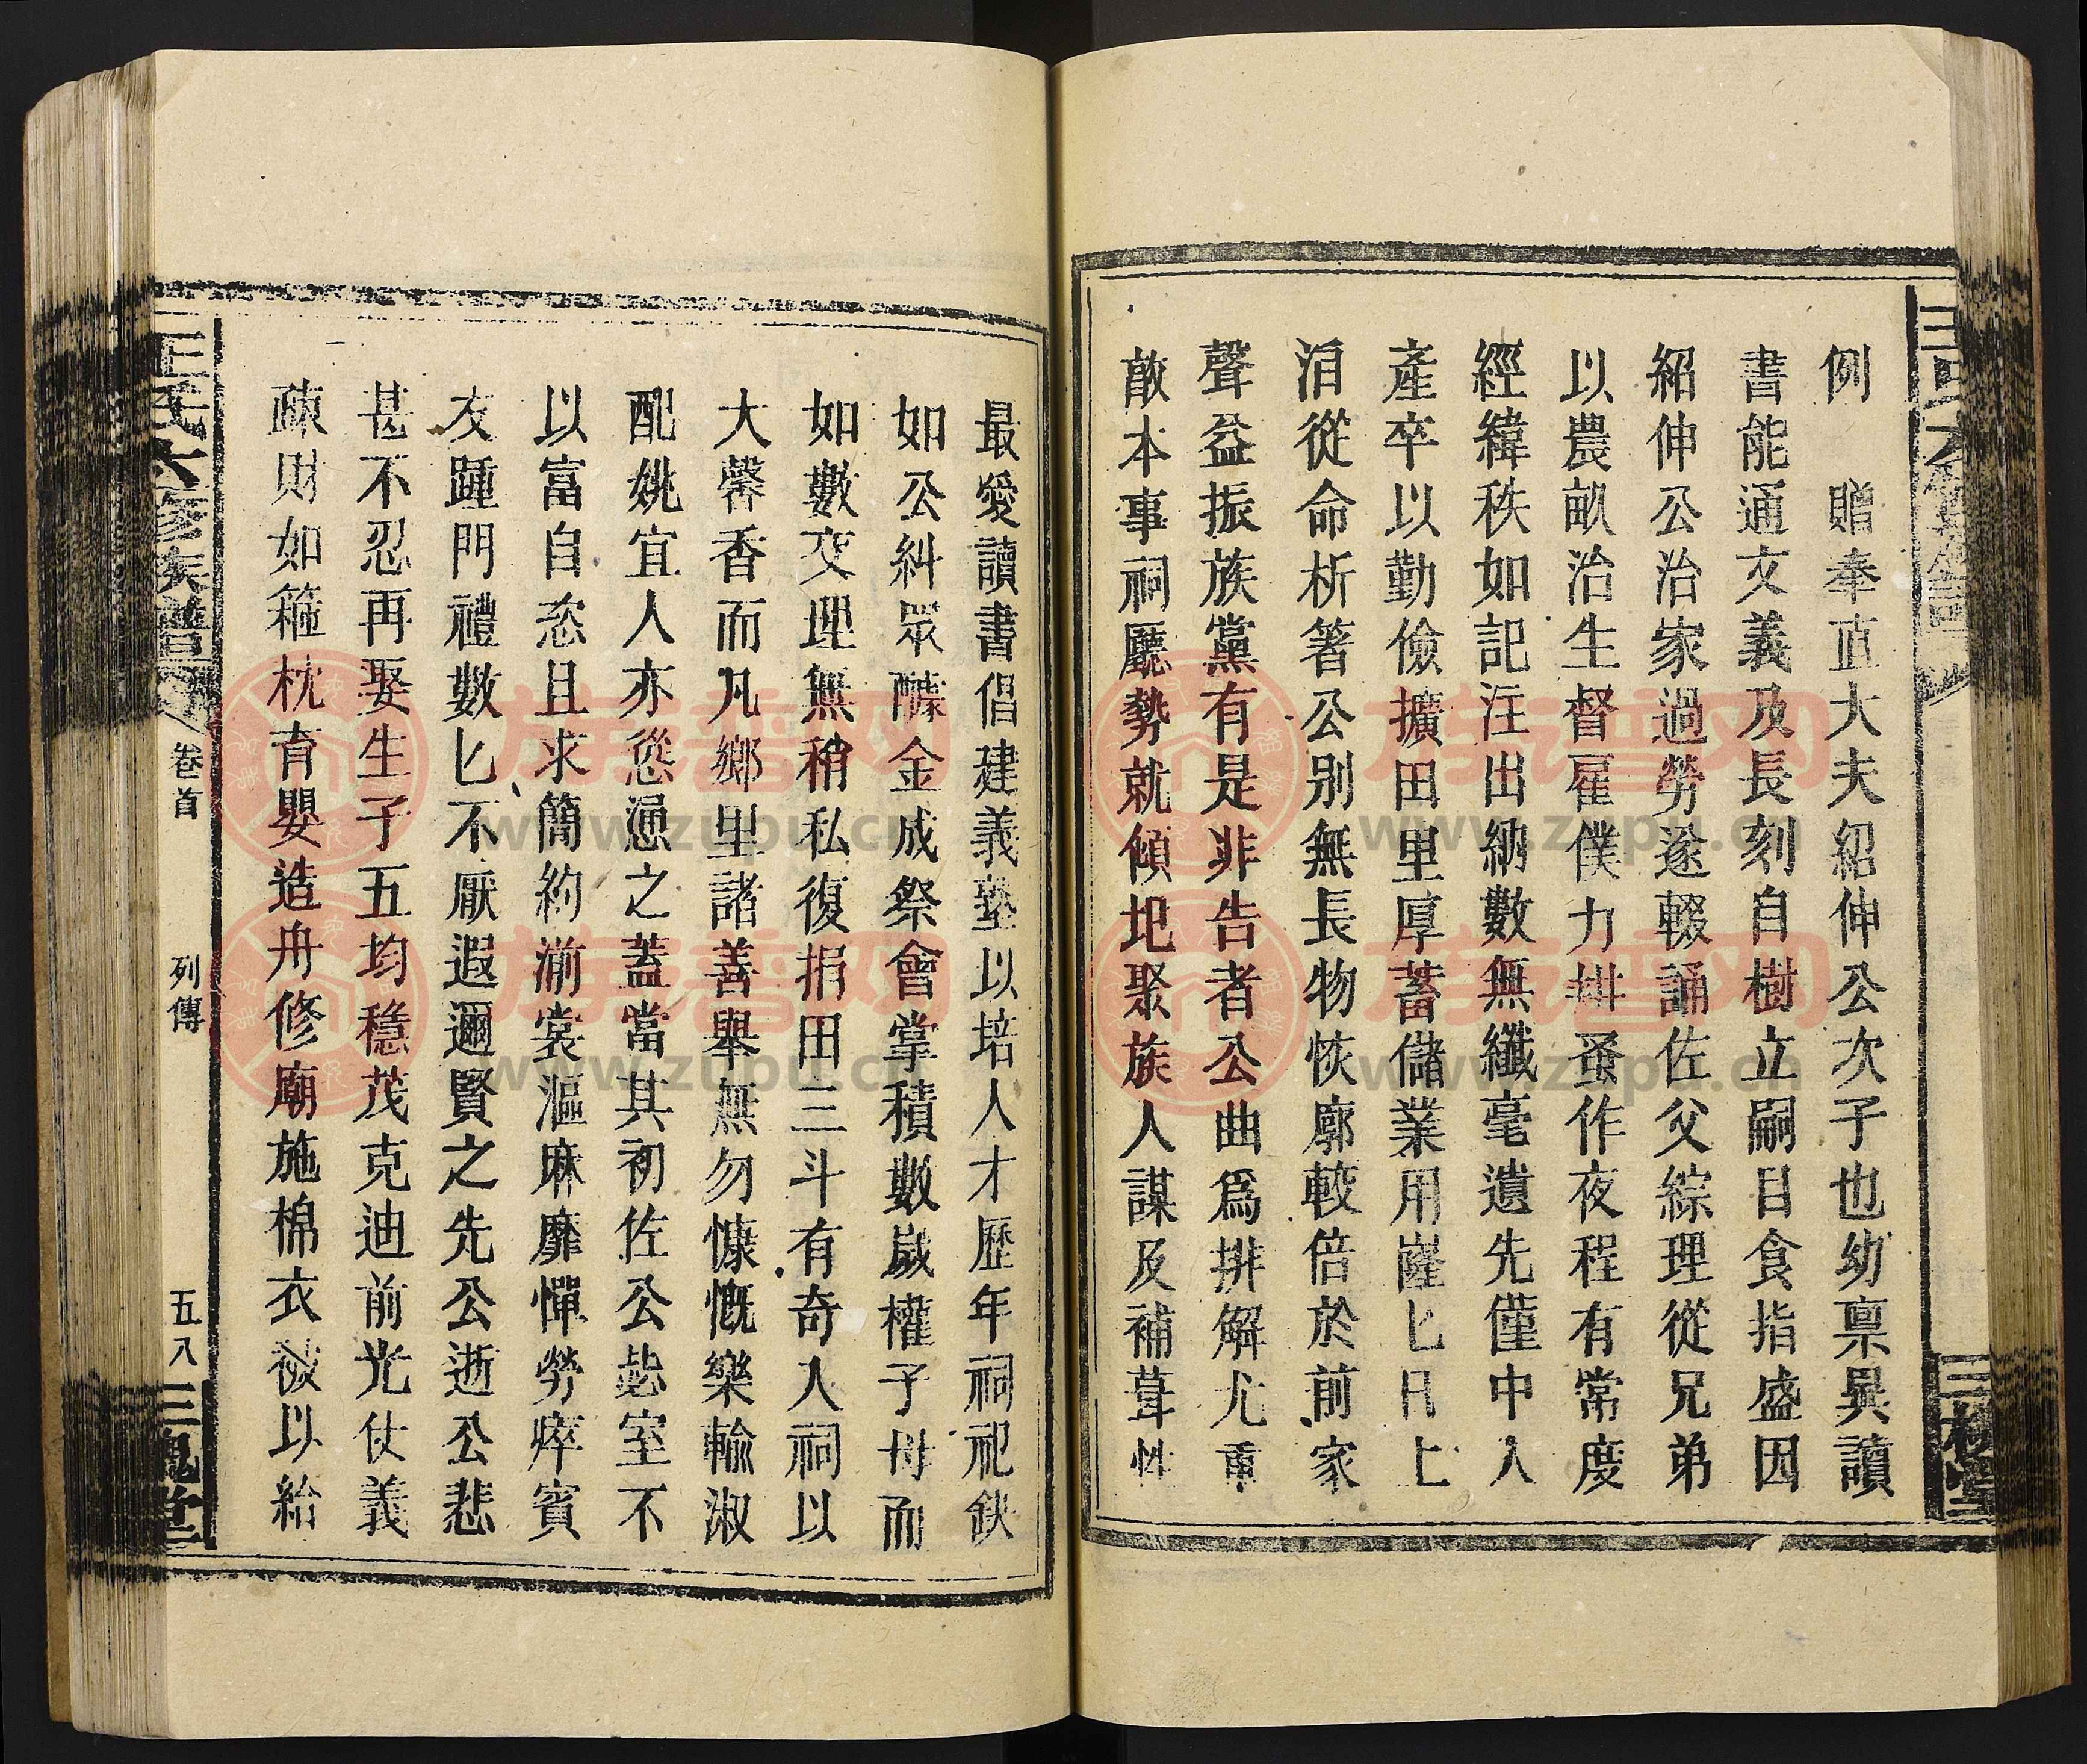 例 贈奉直大夫紹伸公次子也幼禀異讀
書能通文義及長刻自樹立嗣目食指盛因
紹伸公治家過勞遂輟誦佐父綜理從兄弟
以農畝治生督雇僕力耕蚤作夜程有常度
經緯秩如記注出納數無纖毫遺先僅中人
產卒以勤儉擴田里厚蓄儲業用隆匕日上
洎從命析箸公别無長物恢廓較倍於前家
聲益振族黨有是非告者公曲爲排解尤重
敵本事祠廳勢就傾圯聚族人謀及補葺性
最愛讀書倡建義塾以培人才歷年祠祀鈌
如公糾眾醵金成祭會掌積數歲權子母而
如數交理無稍私復捐田三斗有奇入祠以
大馨香而凡鄉里諸善舉無勿慷慨樂輸淑
配姚宜人亦慫慂之蓋當其初佐公起室不
以富自恣且求簡約澣裳漚麻靡憚勞瘁賓
友踵門禮數匕不厭遐邇賢之先公逝公悲
甚不忍再娶生子五均穩茂克迪前光仗義
疎財如箍枕育嬰造舟修廟施棉衣被以給
王氏六修族譜
卷首
列傳
五八
三槐堂
三槐堂
族谱网
www.zupu.cn
族谱网
www.zupu.cn
族谱网
www.zupu.cn
族谱网
www.zupu.cn